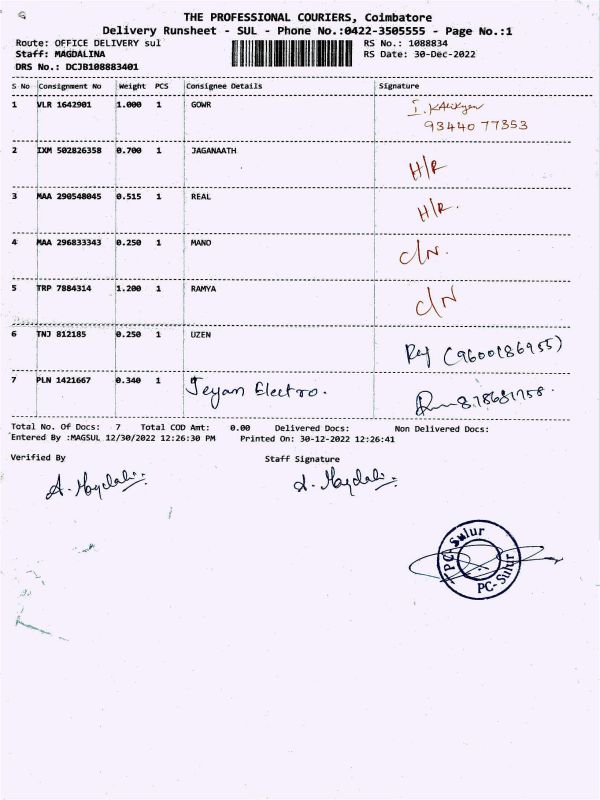 THE PROFESSIONAL COURIERS, Coimbatore
Delivery Runsheet - SUL - Phone No.:0422-3505555 - Page No.:1
Route: OFFICE DELIVERY sul RS No.: 1088834
Staff: MAGDALINA RS Date: 30-Dec-2022
DRS No.: DCJB108883401
S No Consignment No Weight PCS Consignee Details Signature
1 VLR 1642901 1.000 1 GOWR
93440 77353
2 IXM 502826358 0.700 1 JAGANAATH H/R
3 MAA 290548045 0.515 1 REAL H/R.
4 MAA 296833343 0.250 1 MANO C/N.
5 TRP 7884314 1.200 1 RAMYA C/N
6 TNJ 812185 0.250 1 UZEN (9600186955)
7 PLN 1421667 0.340 1 Jeyam Electro.
Total No. Of Docs: 7 Total COD Amt: 0.00 Delivered Docs: Non Delivered Docs:
Entered By :MAGSUL 12/30/2022 12:26:30 PM Printed On: 30-12-2022 12:26:41
Verified By Staff Signature
A. Magdali A. Magdali
TPC-Sulur
PC-Sulur